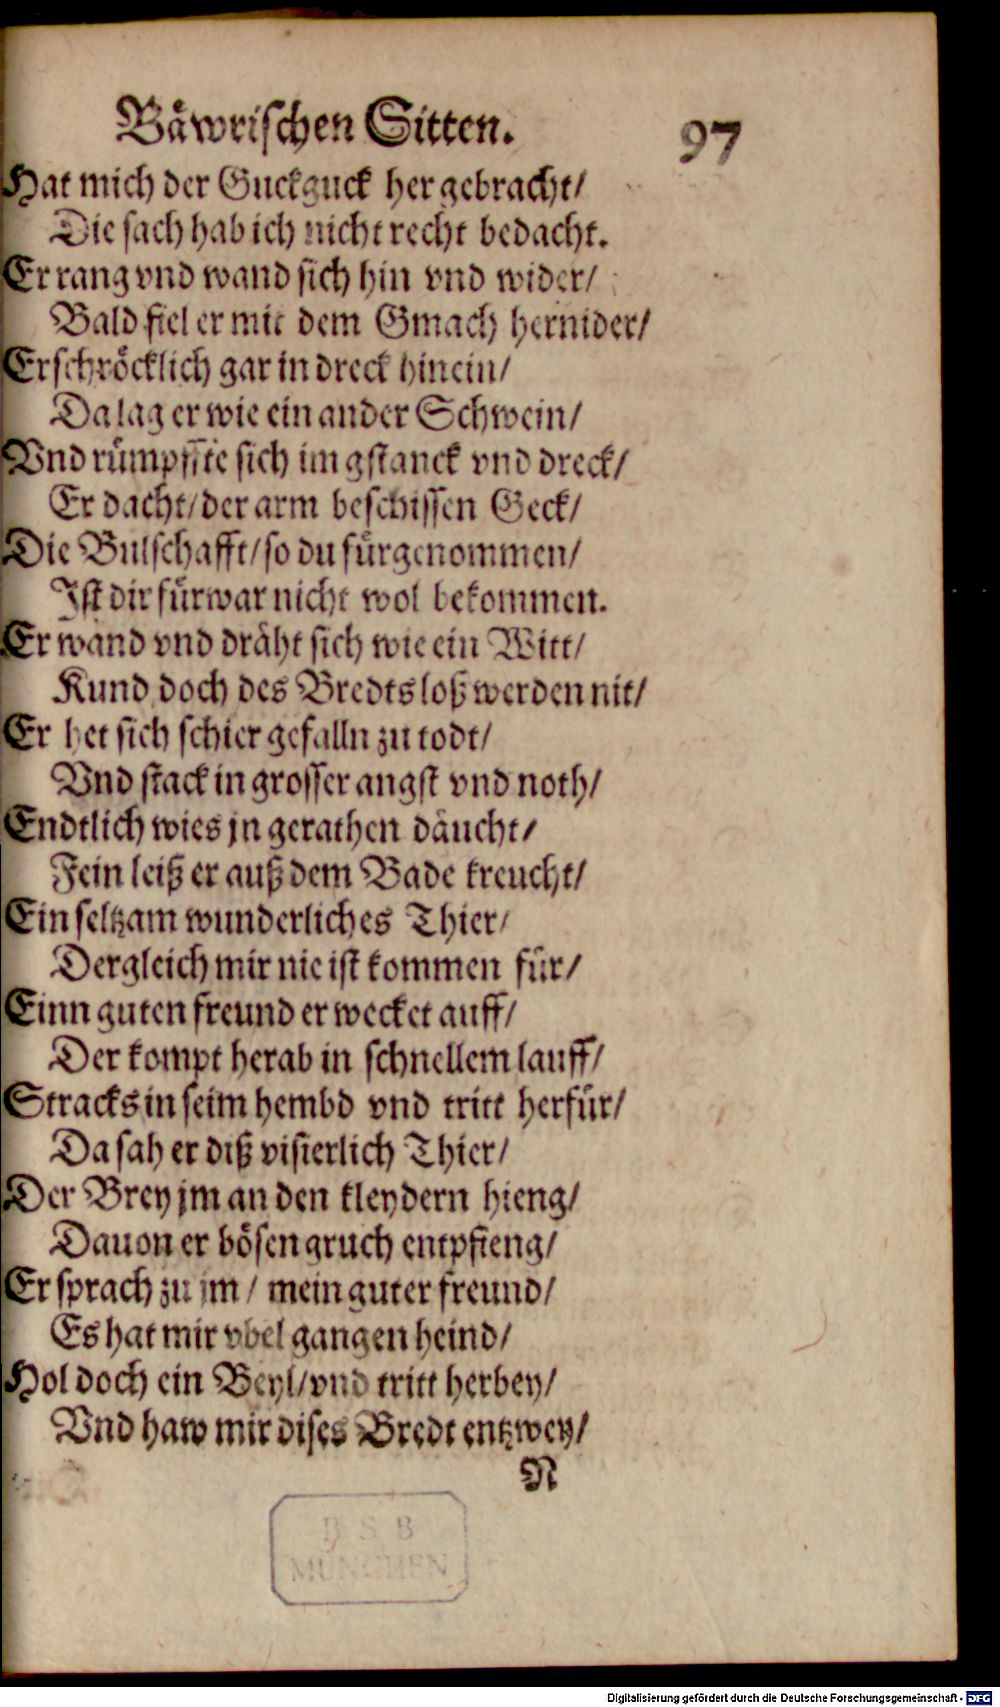 Bäwrischen Sitten. 97
Hat mich der Guckguck her gebracht/
Die sach hab ich nicht recht bedacht.
Er rang vnd wand sich hin vnd wider/
Bald fiel er mit dem Gmach hernider/
Erschröcklich gar in dreck hinein/
Da lag er wie ein ander Schwein/
Vnd rümpffte sich im gstanck vnd dreck/
Er dacht/ der arm beschissen Geck/
Die Bulschafft/ so du fürgenommen/
Ist dir fürwar nicht wol bekommen.
Er wand vnd dräht sich wie ein Witt/
Kund doch des Bredts loß werden nit/
Er het sich schier gefalln zu todt/
Vnd stack in grosser angst vnd noth/
Endtlich wies jn gerathen däucht/
Fein leiß er auß dem Bade kreucht/
Ein seltzam wunderliches Thier/
Dergleich mir nie ist kommen für/
Einn guten freund er wecket auff/
Der kompt herab in schnellem lauff/
Stracks in seim hembd vnd tritt herfür/
Da sah er diß visierlich Thier/
Der Brey jm an den kleydern hieng/
Dauon er bösen gruch entpfieng/
Er sprach zu jm/ mein guter freund/
Es hat mir vbel gangen heind/
Hol doch ein Beyl/ vnd tritt herbey/
Vnd haw mir dises Bredt entzwey/
N
B S B
MÜNCHEN
Digitalisierung gefördert durch die Deutsche Forschungsgemeinschaft - DFG